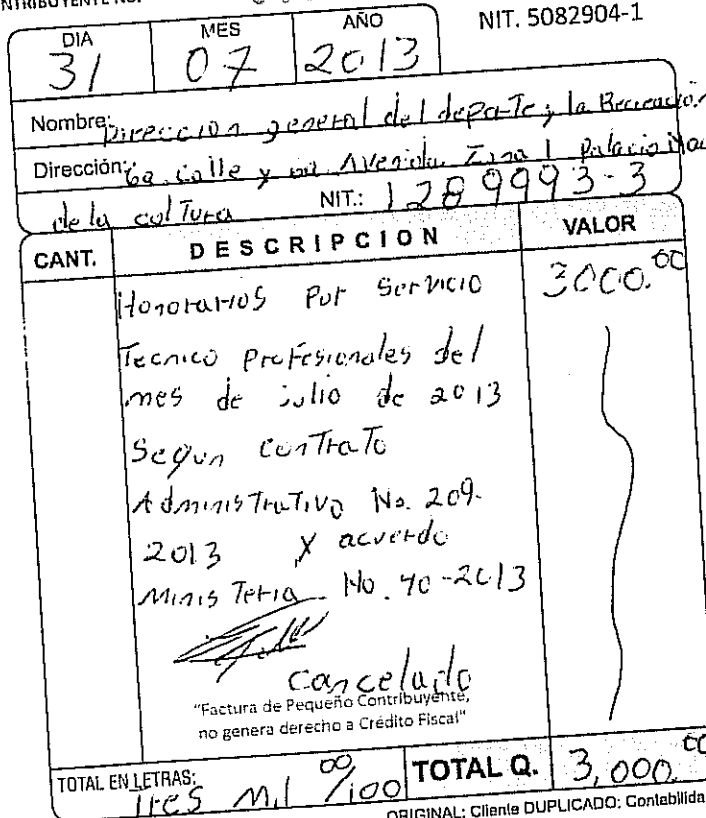 NIT. 5082904-1
DIA MES AÑO
31 07 2013
Nombre: Direccion general del deporte y la Recreación
Dirección: 6a. calle y 6a. Avenida Zona 1 Palacio Nac
de la culTura NIT.: 1289993-3
CANT. DESCRIPCION VALOR
Honorarios Por Servicio 3000.00
Tecnico Profesionales del
mes de julio de 2013
Segun ConTraTo
AdministraTivo No. 209-
2013 y acuerdo
MinisTeria No. 40-2013
Cancelado
"Factura de Pequeño Contribuyente,
no genera derecho a Crédito Fiscal"
TOTAL EN LETRAS: Tres Mil 00/100 TOTAL Q. 3,000.00
ORIGINAL: Cliente DUPLICADO: Contabilida